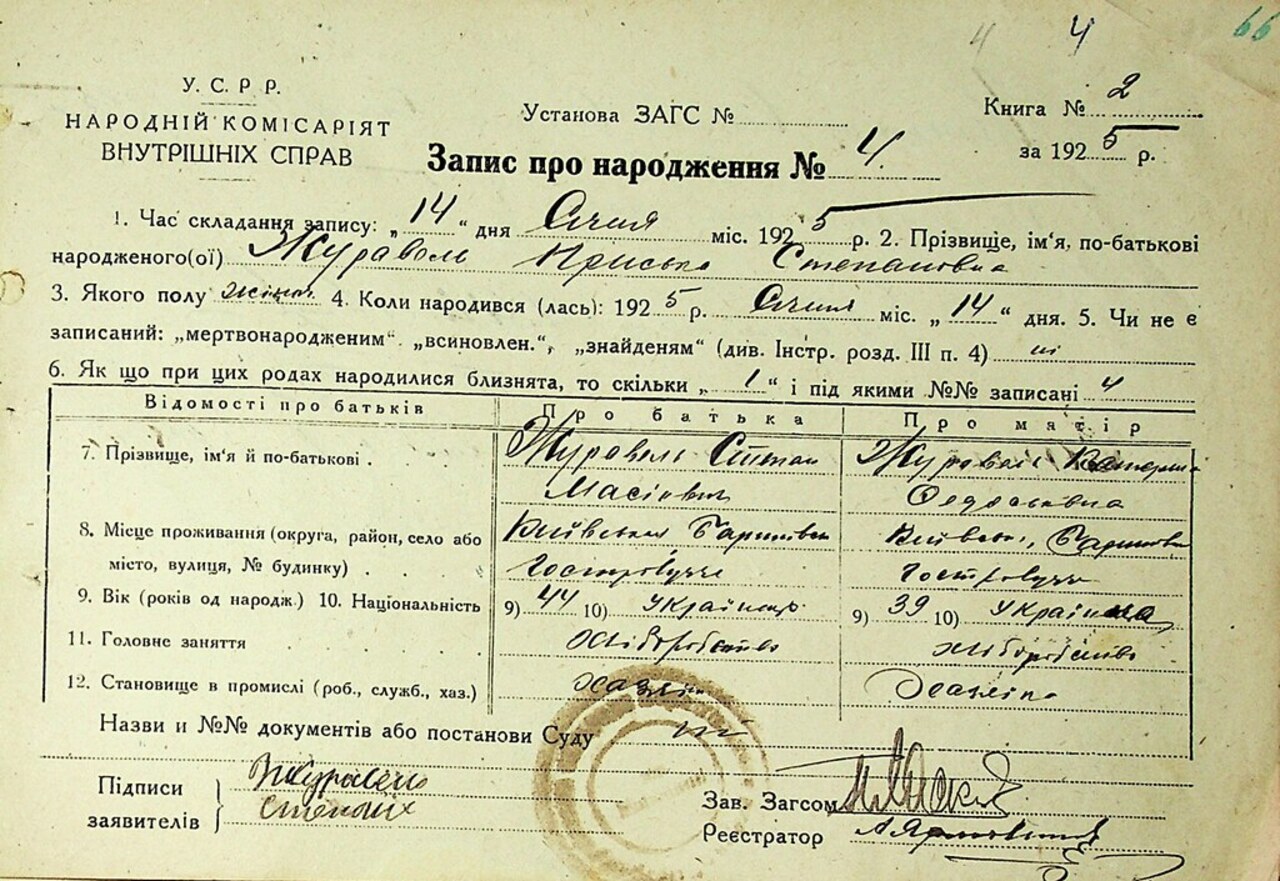 4 4 66
У. С. Р. Р.
НАРОДНІЙ КОМІСАРІЯТ
ВНУТРІШНІХ СПРАВ
Установа ЗАГС №
Книга № 2
за 1925 р.
Запис про народження № 4.
1. Час складання запису: „14“ дня Січня міс. 1925 р. 2. Прізвище, ім'я, по-батькові
народженого(ої) Журавель Приська Степановна
3. Якого полу жіноч. 4. Коли народився (лась): 1925 р. Січня міс. „14“ дня. 5. Чи не є
записаний: „мертвонародженим“. „всиновлен.“, „знайденям“ (див. Інстр. розд. III п. 4) ні
6. Як що при цих родах народилися близнята, то скільки „1“ і під якими №№ записані 4
Відомості про батьків Про батька Про матір
7. Прізвище, ім'я й по-батькові . Журавель Степан Журавель Катерина
Федоськівна
8. Місце проживання (округа, район, село або Київська
місто, вулиця, № будинку) . . . Гостролуччє Гостролуччє
9. Вік (років од народж.) 10. Національність 9) 44 10) Українець 9) 39 10) Українка
11. Головне заняття хліборобство хліборобство
12. Становище в промислі (роб., служб., хаз.) хазяїн Хазяїна
Назви и №№ документів або постанови Суду ні
Підписи Журавель
заявителів Степан
Зав. Загсом
Реєстратор